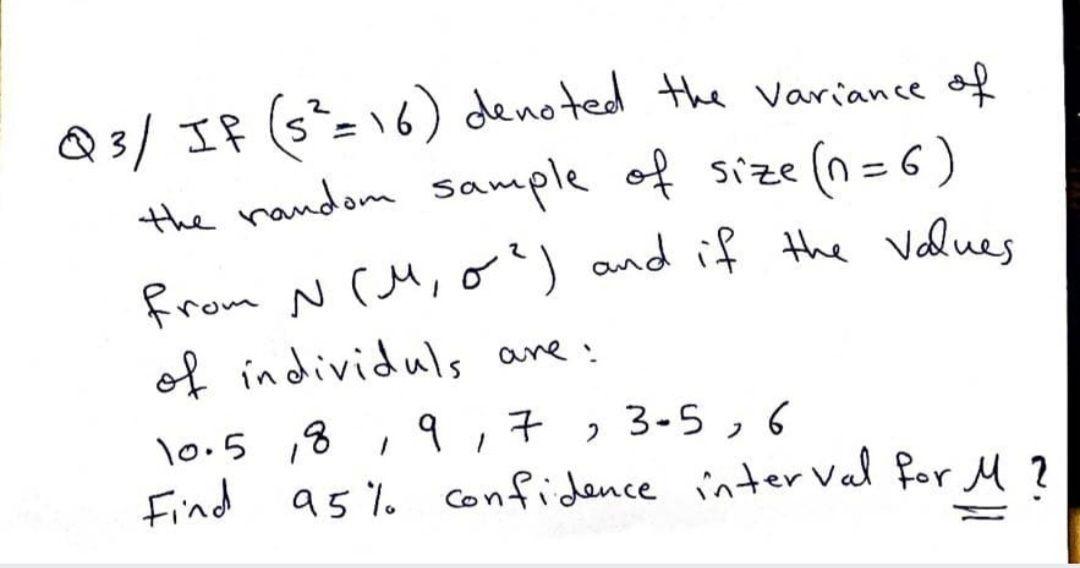 Q3/ If (s²=16) denoted the variance of
the random sample of size (n=6)
from N(M, σ²) and if the values
of individuls are:
10.5 , 8 , 9 , 7 , 3-5 , 6
Find 95% confidence interval for M ?